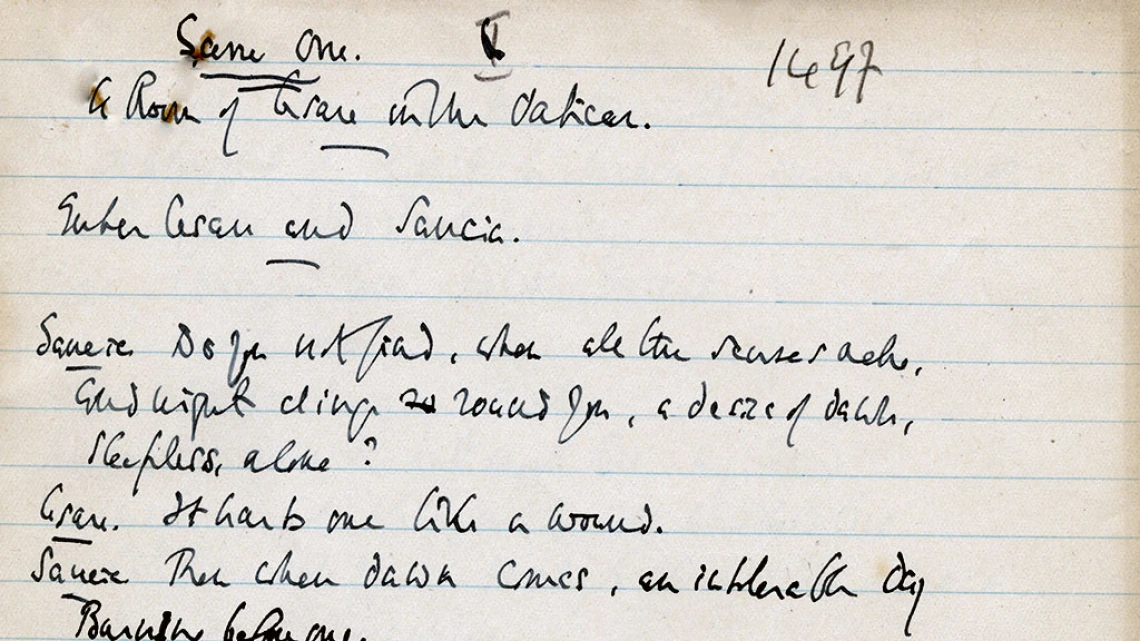 Scene One. I
1497
A Room of Cesare in the Vatican.
Enter Cesare and Sancia.
Sancia Do you not find, when all the senses ache,
And night clings round you, a desire of dawn,
Sleepless, alone?
Cesare. It hurts one like a wound.
Sancia Then when dawn comes, an intolerable day
Burning before one.